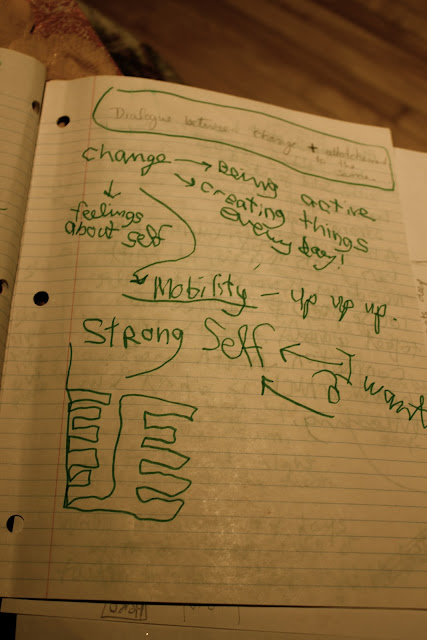 Dialogue between change +
to the
change → Being active
↓ ↘ creating things
feelings every day!
about self
Mobility - up up up.
Strong Self ← I want